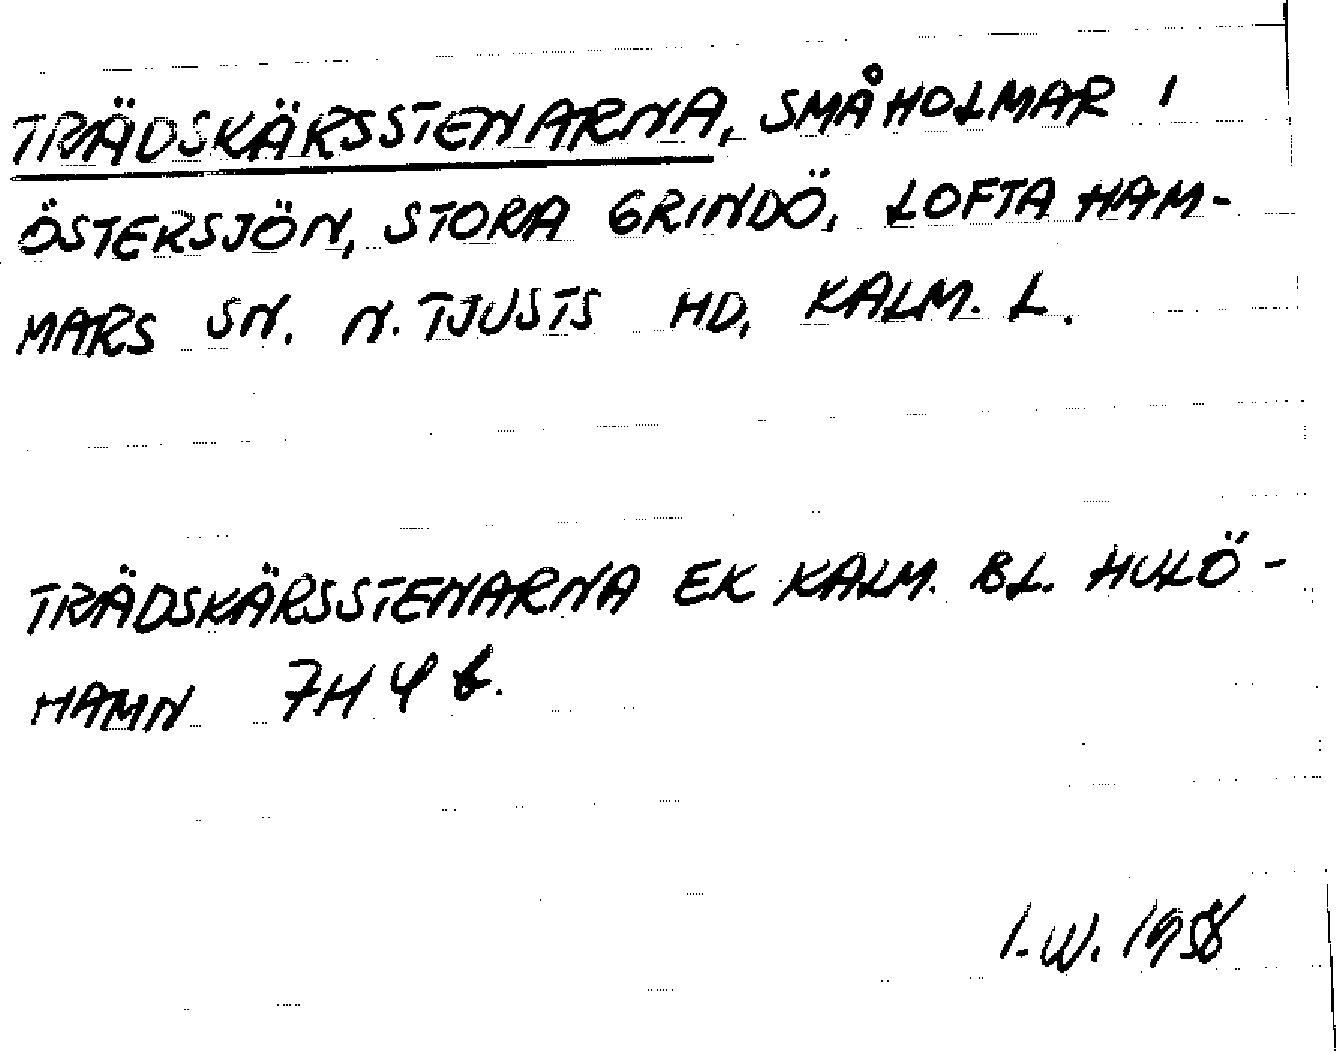 TRÄDSKÄRSSTENARNA, SMÅHOLMAR I
ÖSTERSJÖN, STORA GRINDÖ, LOFTA HAM-
MARS SN. N. TJUSTS HD, KALM. L.
TRÄDSKÄRSSTENARNA EK KALM. BL. HULÖ-
HAMN 7H 4 b.
I.W. 1958